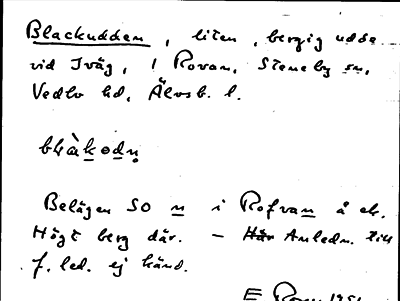 Blackudden, liten, bergig udde
vid Iväg, i Rovan, Steneby sn,
Vedbo hd, Älvsb. l.
Belägen SO n i Rofvan å ek.
Högt berg där. – Här Anledn. till
f. led. ej känd.
E